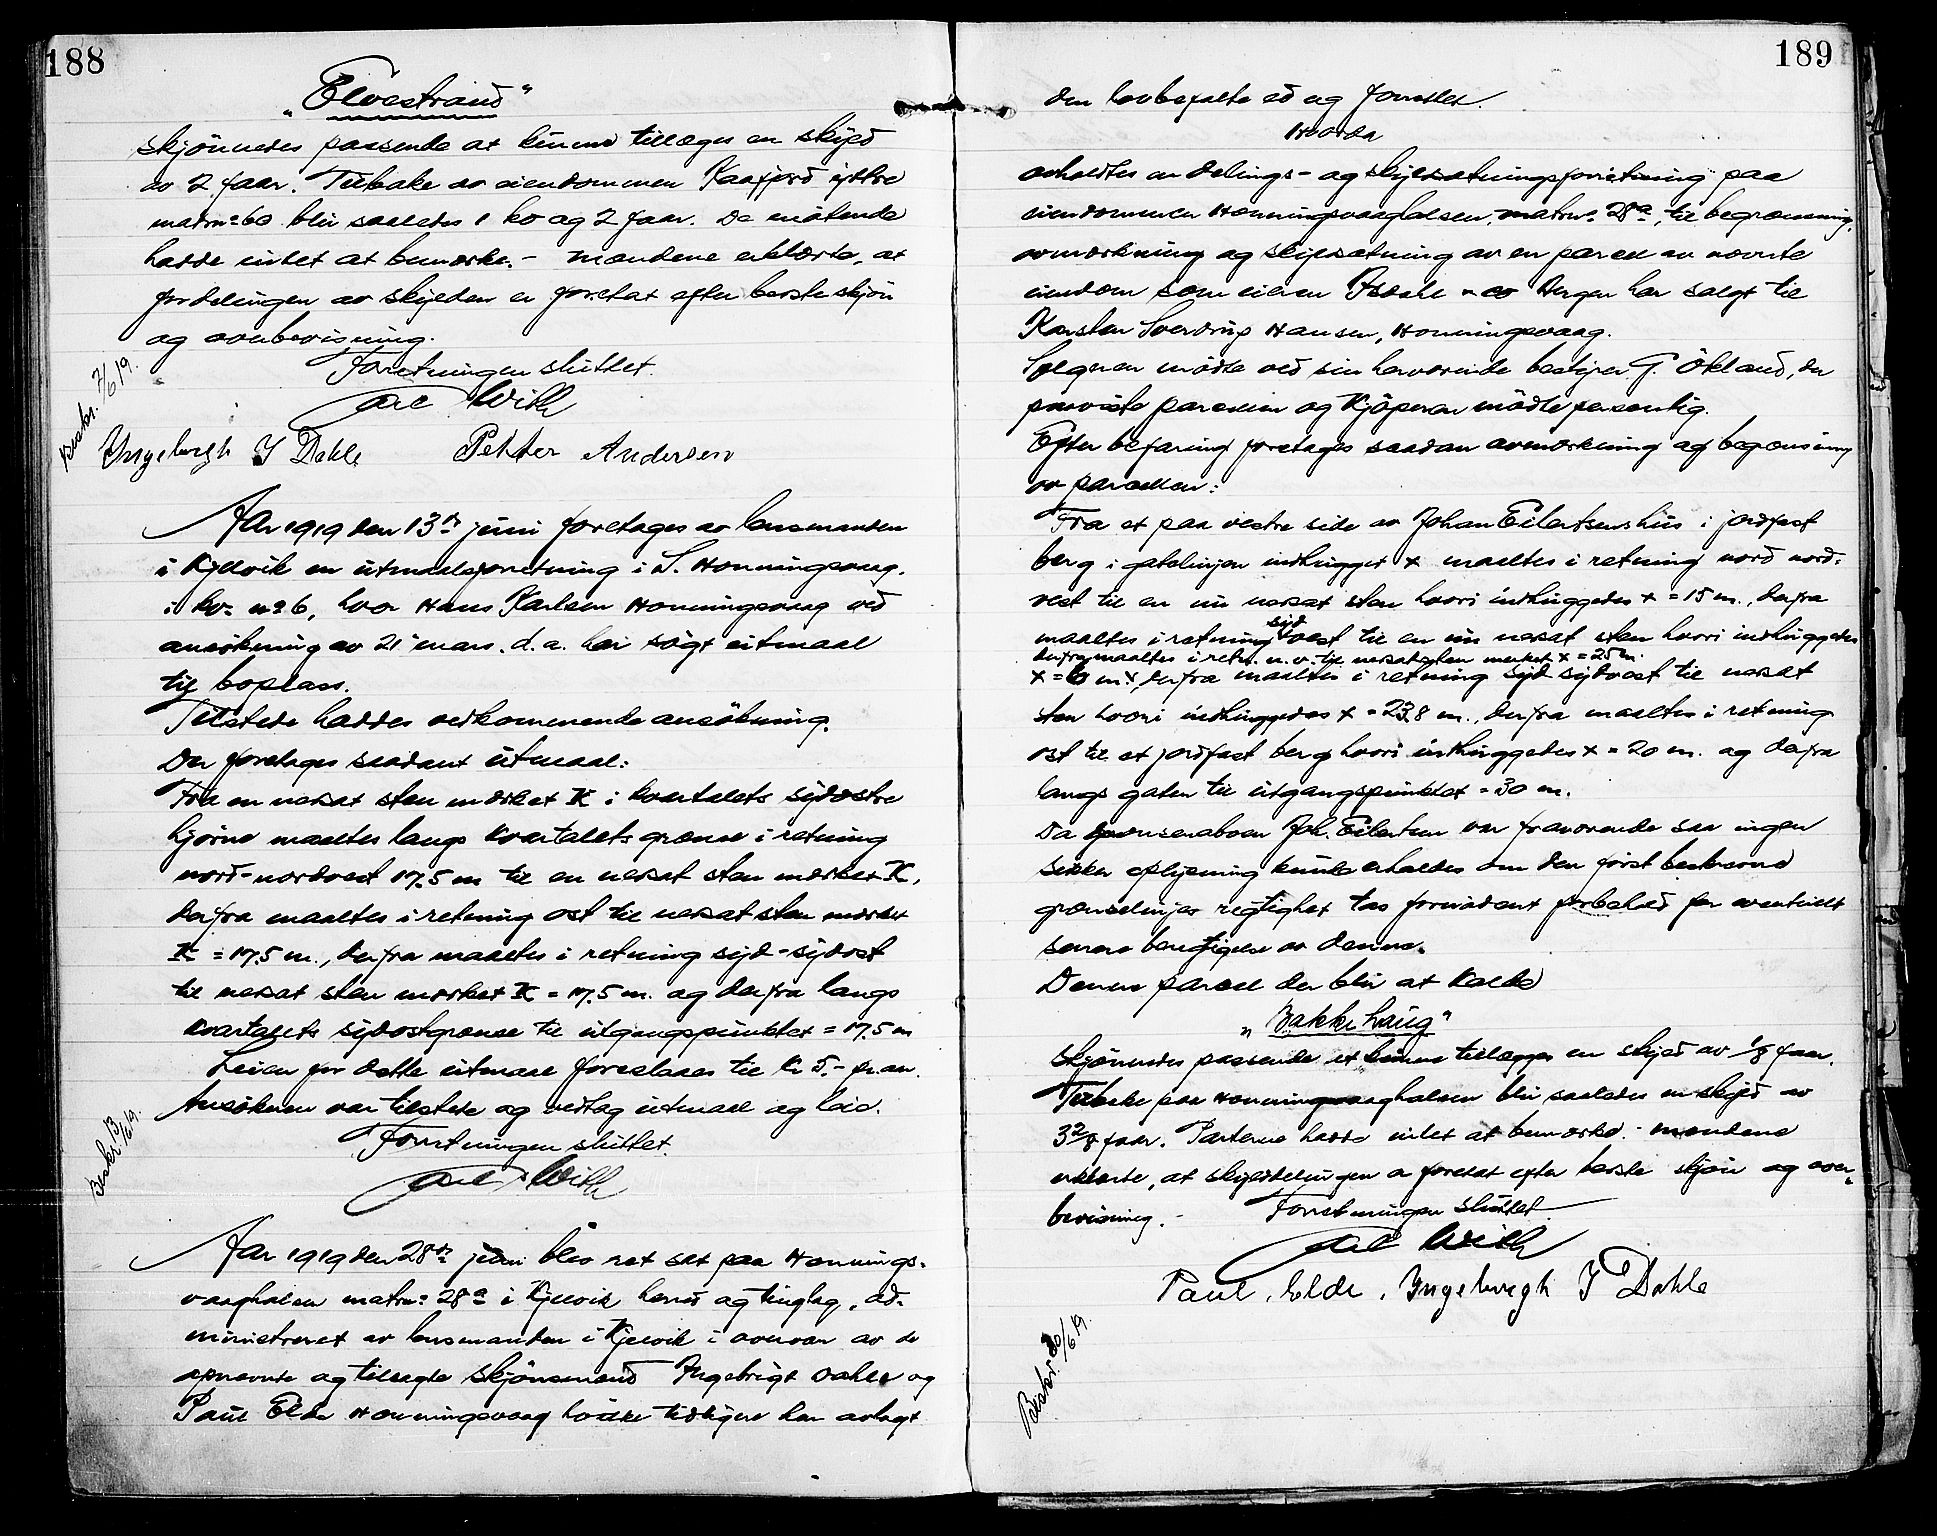 188
„Elvestrand“
skjönnedes passende at kunne tillægges en skyld
av 2 faar. Tilbake av eiendommen Kaafjord ijttre
matrn: 60 blir saaledes 1 ko og 2 faar. De mötende
hadde intet at bemerke. – Mændene erklærte, at
fordelingen av skylden er foretat efter beste skjön
og overbevisning.
Forretningen sluttet.
With
Beskr. 7/6 19.
Yngebrigh I Dahle Petter Andersen
Aar 1919 den 13de juni foretages av lensmanden
i Kjelvik en utmaalsforretning i S. Honningsvaag.
i kv. no 6, hvor Hans Karlsen Honningsvaag ved
ansökning av 21 mars. d. a. har sögt utmaal
til boplass.
Tilstede haddes vedkommende ansökning.
Der foretages saadant utmaal:
Fra en nedsat sten merket K i kvartalets sydöstre
hjörne maaltes langs kvartalets grænse i retning
nord-nordvest 17.5 m til en nedsat sten mærket K,
derfra maaltes i retning ost til nedsat sten merket
K = 17.5 m., derfra maaltes i retning syd-sydost
til nedsat sten merket K = 17.5 m. og derfra langs
kvartalets sydostgrænse til utgangspunktet = 17.5 m
Leien for dette utmaal foreslaaes til kr 5.- pr. an.
Ansökeren var tilstede og vedtog utmaal og leie.
Forretningen sluttet.
With
Beskr. 13/6 19.
Aar 1919 den 28de juni blev ret sat paa Honnings-
vaaghalsen matrn: 28a i Kjelvik herred og tinglag, ad-
ministreret av lensmanden i Kjelvik i overvær av de
opnævnte og tilsagte skjönsmænd Ingebrigt Dahle og
Paul Elde Honningsvaag hvilke tidligere har avlagt
189
den lovbefalte ed og forretter.
Hvorda
avholdtes en delings- og skyldsætningsforretning paa
eiendommen Honningsvaaghalsen, matrn: 28a, til begrænsning,
avmerkning og skyldsætning av en parcel av nævnte
eiendom som eieren & co Bergen har solgt til
Karsten Sverdrup Hansen, Honningsvaag.
Selgeren mödte ved sin herværende bestyrer G. Ökland, der
paaviste parcellen og Kjöperen mödte personlig.
Efter befaring foretages saadan avmerkning og begrænsning
av parcellen:
Fra et paa vestre side av Johan Eilertsens hus i jordfast
berg i gatelinjen indhugget x maaltes i retning nord nord-
vest til en nu nedsat sten hvori indhuggedes x = 15 m., derfra
maaltes i retning syd vest til en nu nedsat sten hvori indhuggedes
derfra maaltes i retn. n. v. til nedsat sten merket x = 25 m.
x = 6 m., derfra maaltes i retning syd sydvest til nedsat
sten hvori indhuggedes x = 23.8 m., derfra maaltes i retning
ost til et jordfast berg hvori indhuggedes x = 20 m. og derfra
langs gaten til utgangspunktet = 30 m.
Da grænsenaboen Joh. Eilertsen var fraværende saa ingen
sikker oplysning kunde erholdes om den först beskrevne
grænselinjes rigtighet tas forsaavidt forbehold for eventuelt
senere berigtigelse av denne.
Denne parcel der blir at kalde
„Bakkehaug“
skjönnedes passende at kunne tillægges en skyld av 1/8 faar.
Tilbake paa Honningsvaaghalsen blir saaledes en skyld av
3 2/8 faar. Parterne hadde intet at bemerke. – Mændene
erklærte, at skylddelingen er foretat efter beste skjön og over-
bevisning. – Forretningen sluttet.
With
Paul Elde. Yngebrigh I Dahle
Beskr. 30/6 19.